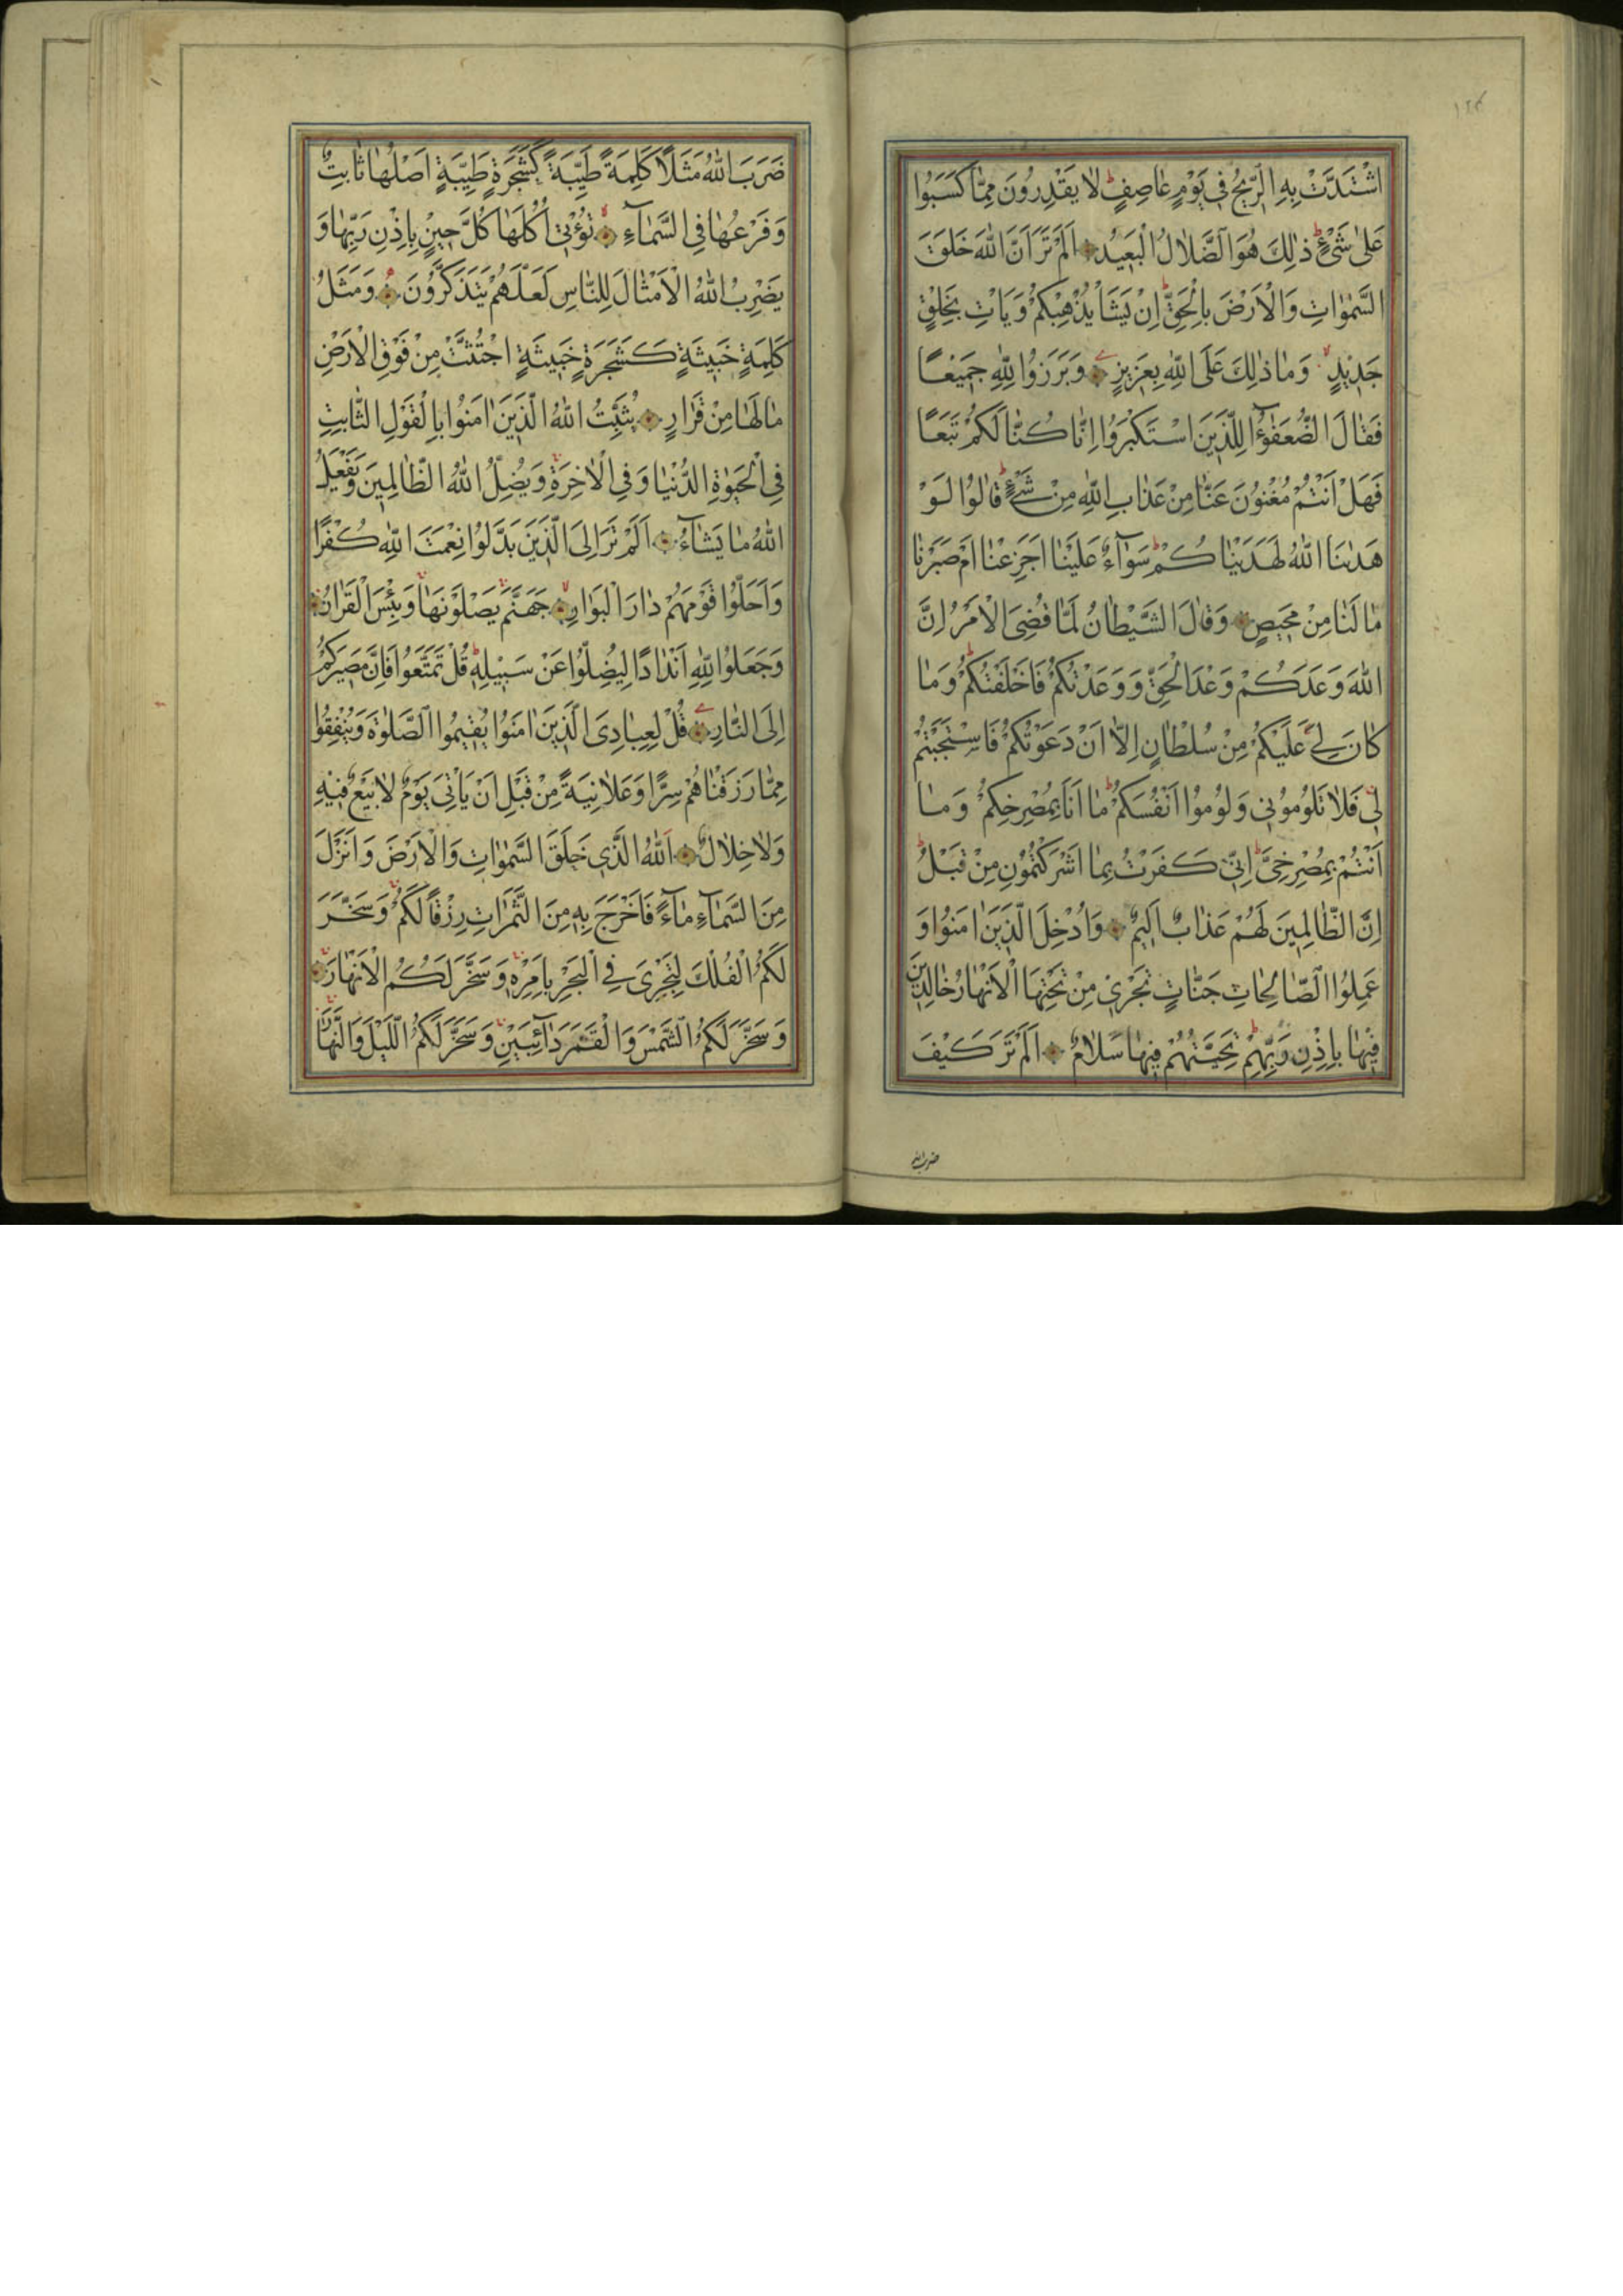 ١٢٤
اشْتَدَّتْ بِهِ الرِّيحُ فِي يَوْمٍ عَاصِفٍ لَا يَقْدِرُونَ مِمَّا كَسَبُوا
عَلَىٰ شَيْءٍ ذٰلِكَ هُوَ الضَّلَالُ الْبَعِيدُ اَلَمْ تَرَ اَنَّ اللّٰهَ خَلَقَ
السَّمٰوَاتِ وَالْاَرْضَ بِالْحَقِّ اِنْ يَشَأْ يُذْهِبْكُمْ وَيَاْتِ بِخَلْقٍ
جَدِيدٍ وَمَا ذٰلِكَ عَلَى اللّٰهِ بِعَزِيزٍ وَبَرَزُوا لِلّٰهِ جَمِيعًا
فَقَالَ الضُّعَفٰٓؤُا لِلَّذِينَ اسْتَكْبَرُوا اِنَّا كُنَّا لَكُمْ تَبَعًا
فَهَلْ اَنْتُمْ مُغْنُونَ عَنَّا مِنْ عَذَابِ اللّٰهِ مِنْ شَيْءٍ قَالُوا لَوْ
هَدٰينَا اللّٰهُ لَهَدَيْنَاكُمْ سَوَآءٌ عَلَيْنَا اَجَزِعْنَا اَمْ صَبَرْنَا
مَا لَنَا مِنْ مَحِيصٍ وَقَالَ الشَّيْطَانُ لَمَّا قُضِيَ الْاَمْرُ اِنَّ
اللّٰهَ وَعَدَكُمْ وَعْدَ الْحَقِّ وَوَعَدْتُكُمْ فَاَخْلَفْتُكُمْ وَمَا
كَانَ لِيَ عَلَيْكُمْ مِنْ سُلْطَانٍ اِلَّا اَنْ دَعَوْتُكُمْ فَاسْتَجَبْتُمْ
لِي فَلَا تَلُومُونِي وَلُومُوا اَنْفُسَكُمْ مَا اَنَا بِمُصْرِخِكُمْ وَمَا
اَنْتُمْ بِمُصْرِخِيَّ اِنِّي كَفَرْتُ بِمَا اَشْرَكْتُمُونِ مِنْ قَبْلُ
اِنَّ الظَّالِمِينَ لَهُمْ عَذَابٌ اَلِيمٌ وَاُدْخِلَ الَّذِينَ اٰمَنُوا وَ
عَمِلُوا الصَّالِحَاتِ جَنَّاتٍ تَجْرِي مِنْ تَحْتِهَا الْاَنْهَارُ خَالِدِينَ
فِيهَا بِاِذْنِ رَبِّهِمْ تَحِيَّتُهُمْ فِيهَا سَلَامٌ اَلَمْ تَرَ كَيْفَ
ضرب الله
ضَرَبَ اللّٰهُ مَثَلًا كَلِمَةً طَيِّبَةً كَشَجَرَةٍ طَيِّبَةٍ اَصْلُهَا ثَابِتٌ
وَفَرْعُهَا فِي السَّمَآءِ تُؤْتِي اُكُلَهَا كُلَّ حِينٍ بِاِذْنِ رَبِّهَا وَ
يَضْرِبُ اللّٰهُ الْاَمْثَالَ لِلنَّاسِ لَعَلَّهُمْ يَتَذَكَّرُونَ وَمَثَلُ
كَلِمَةٍ خَبِيثَةٍ كَشَجَرَةٍ خَبِيثَةٍ اجْتُثَّتْ مِنْ فَوْقِ الْاَرْضِ
مَا لَهَا مِنْ قَرَارٍ يُثَبِّتُ اللّٰهُ الَّذِينَ اٰمَنُوا بِالْقَوْلِ الثَّابِتِ
فِي الْحَيٰوةِ الدُّنْيَا وَفِي الْاٰخِرَةِ وَيُضِلُّ اللّٰهُ الظَّالِمِينَ وَيَفْعَلُ
اللّٰهُ مَا يَشَآءُ اَلَمْ تَرَ اِلَى الَّذِينَ بَدَّلُوا نِعْمَتَ اللّٰهِ كُفْرًا
وَاَحَلُّوا قَوْمَهُمْ دَارَ الْبَوَارِ جَهَنَّمَ يَصْلَوْنَهَا وَبِئْسَ الْقَرَارُ
وَجَعَلُوا لِلّٰهِ اَنْدَادًا لِيُضِلُّوا عَنْ سَبِيلِهِ قُلْ تَمَتَّعُوا فَاِنَّ مَصِيرَكُمْ
اِلَى النَّارِ قُلْ لِعِبَادِيَ الَّذِينَ اٰمَنُوا يُقِيمُوا الصَّلٰوةَ وَيُنْفِقُوا
مِمَّا رَزَقْنَاهُمْ سِرًّا وَعَلَانِيَةً مِنْ قَبْلِ اَنْ يَاْتِيَ يَوْمٌ لَا بَيْعٌ فِيهِ
وَلَا خِلَالٌ اَللّٰهُ الَّذِي خَلَقَ السَّمٰوَاتِ وَالْاَرْضَ وَاَنْزَلَ
مِنَ السَّمَآءِ مَآءً فَاَخْرَجَ بِهِ مِنَ الثَّمَرَاتِ رِزْقًا لَكُمْ وَسَخَّرَ
لَكُمُ الْفُلْكَ لِتَجْرِيَ فِي الْبَحْرِ بِاَمْرِهِ وَسَخَّرَ لَكُمُ الْاَنْهَارَ
وَسَخَّرَ لَكُمُ الشَّمْسَ وَالْقَمَرَ دَآئِبَيْنِ وَسَخَّرَ لَكُمُ اللَّيْلَ وَالنَّهَارَ